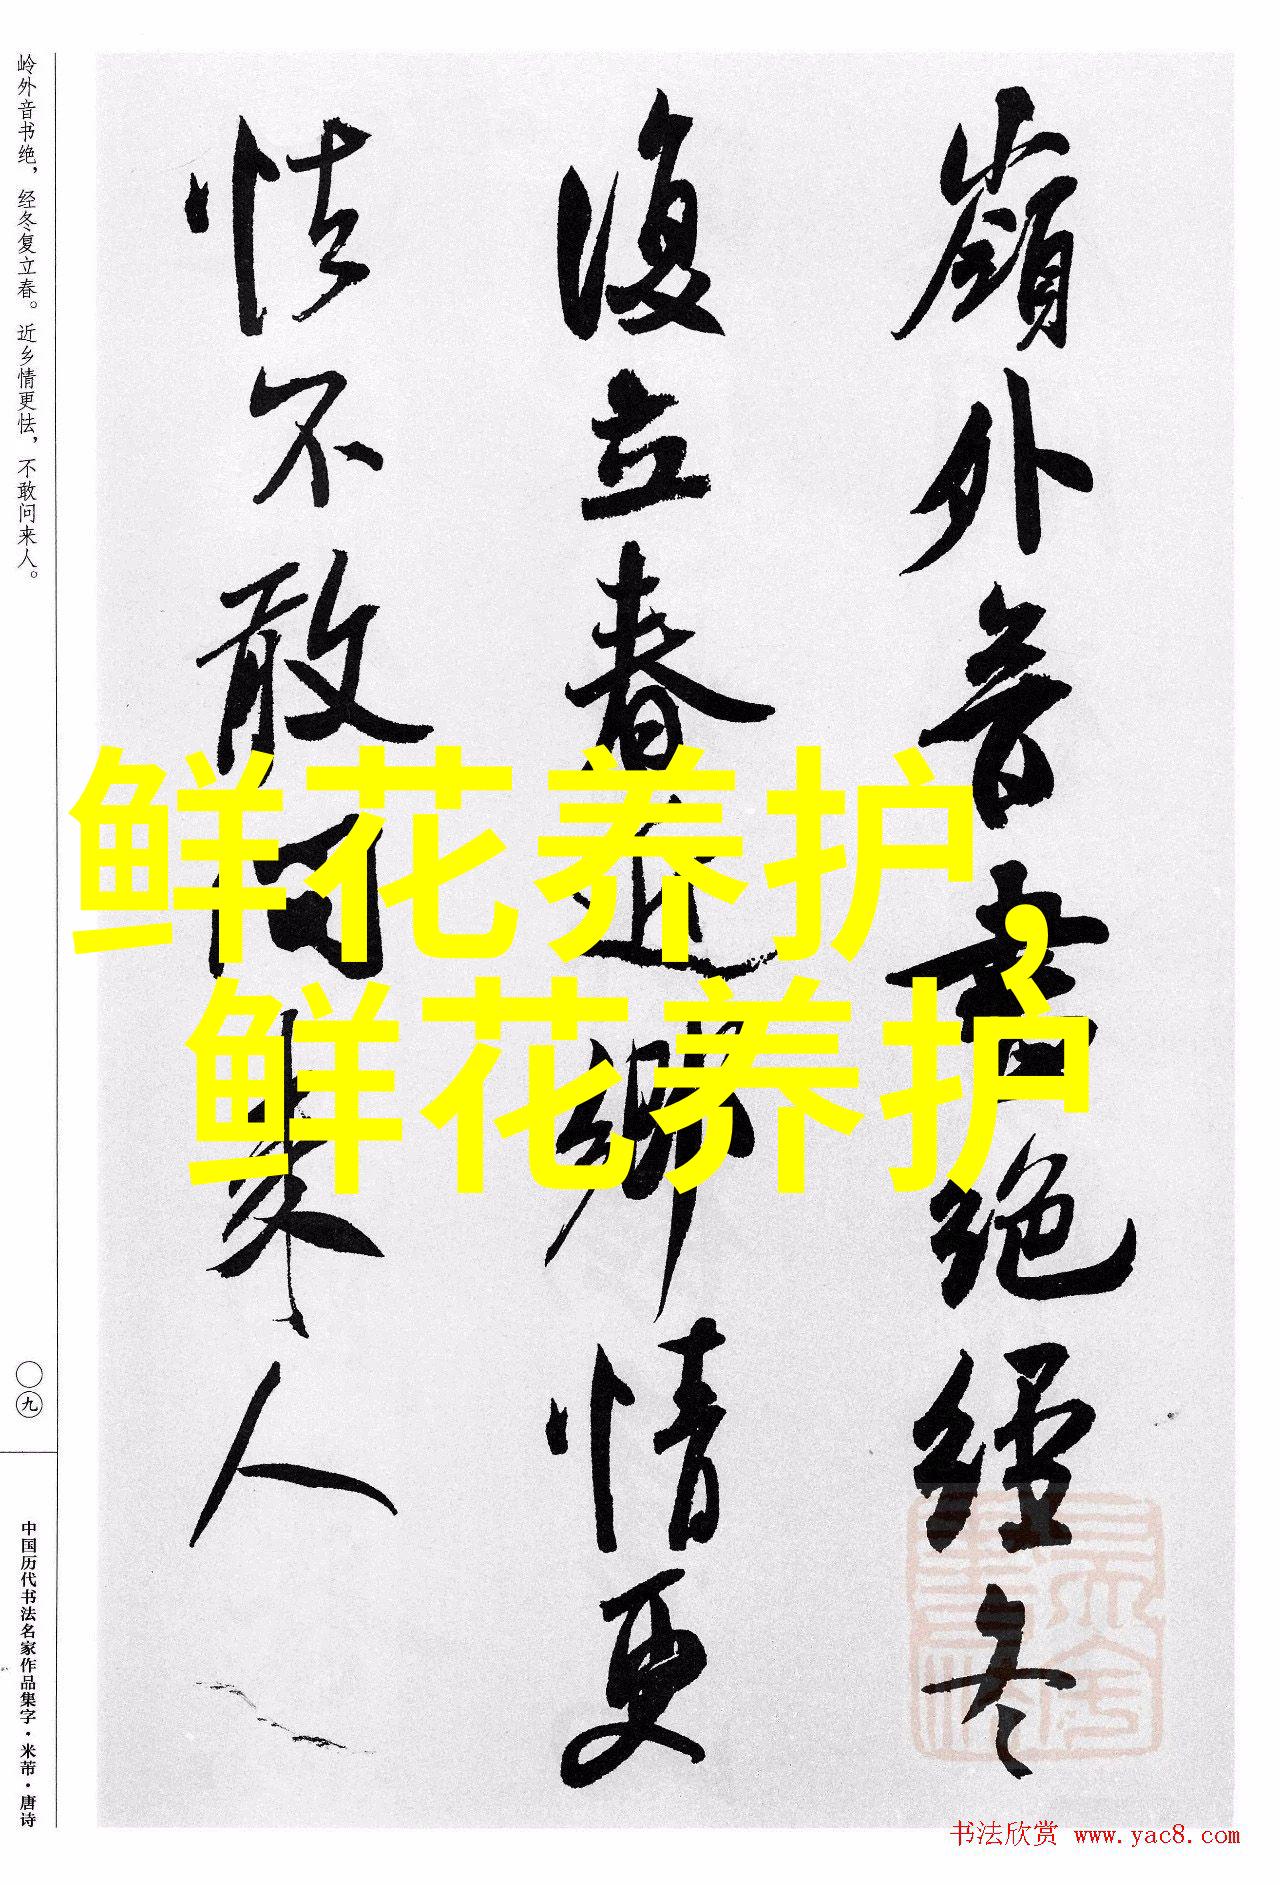 嶺外音書絶經冬
復立春近鄉情更
怯不敢問来人
岭外音书绝，经冬复立春。近乡情更怯，不敢问来人。
〇九
中国历代书法名家作品集字·米芾·唐诗
鲜花养护，
鲜花养护
书法欣赏 www.yac8.com